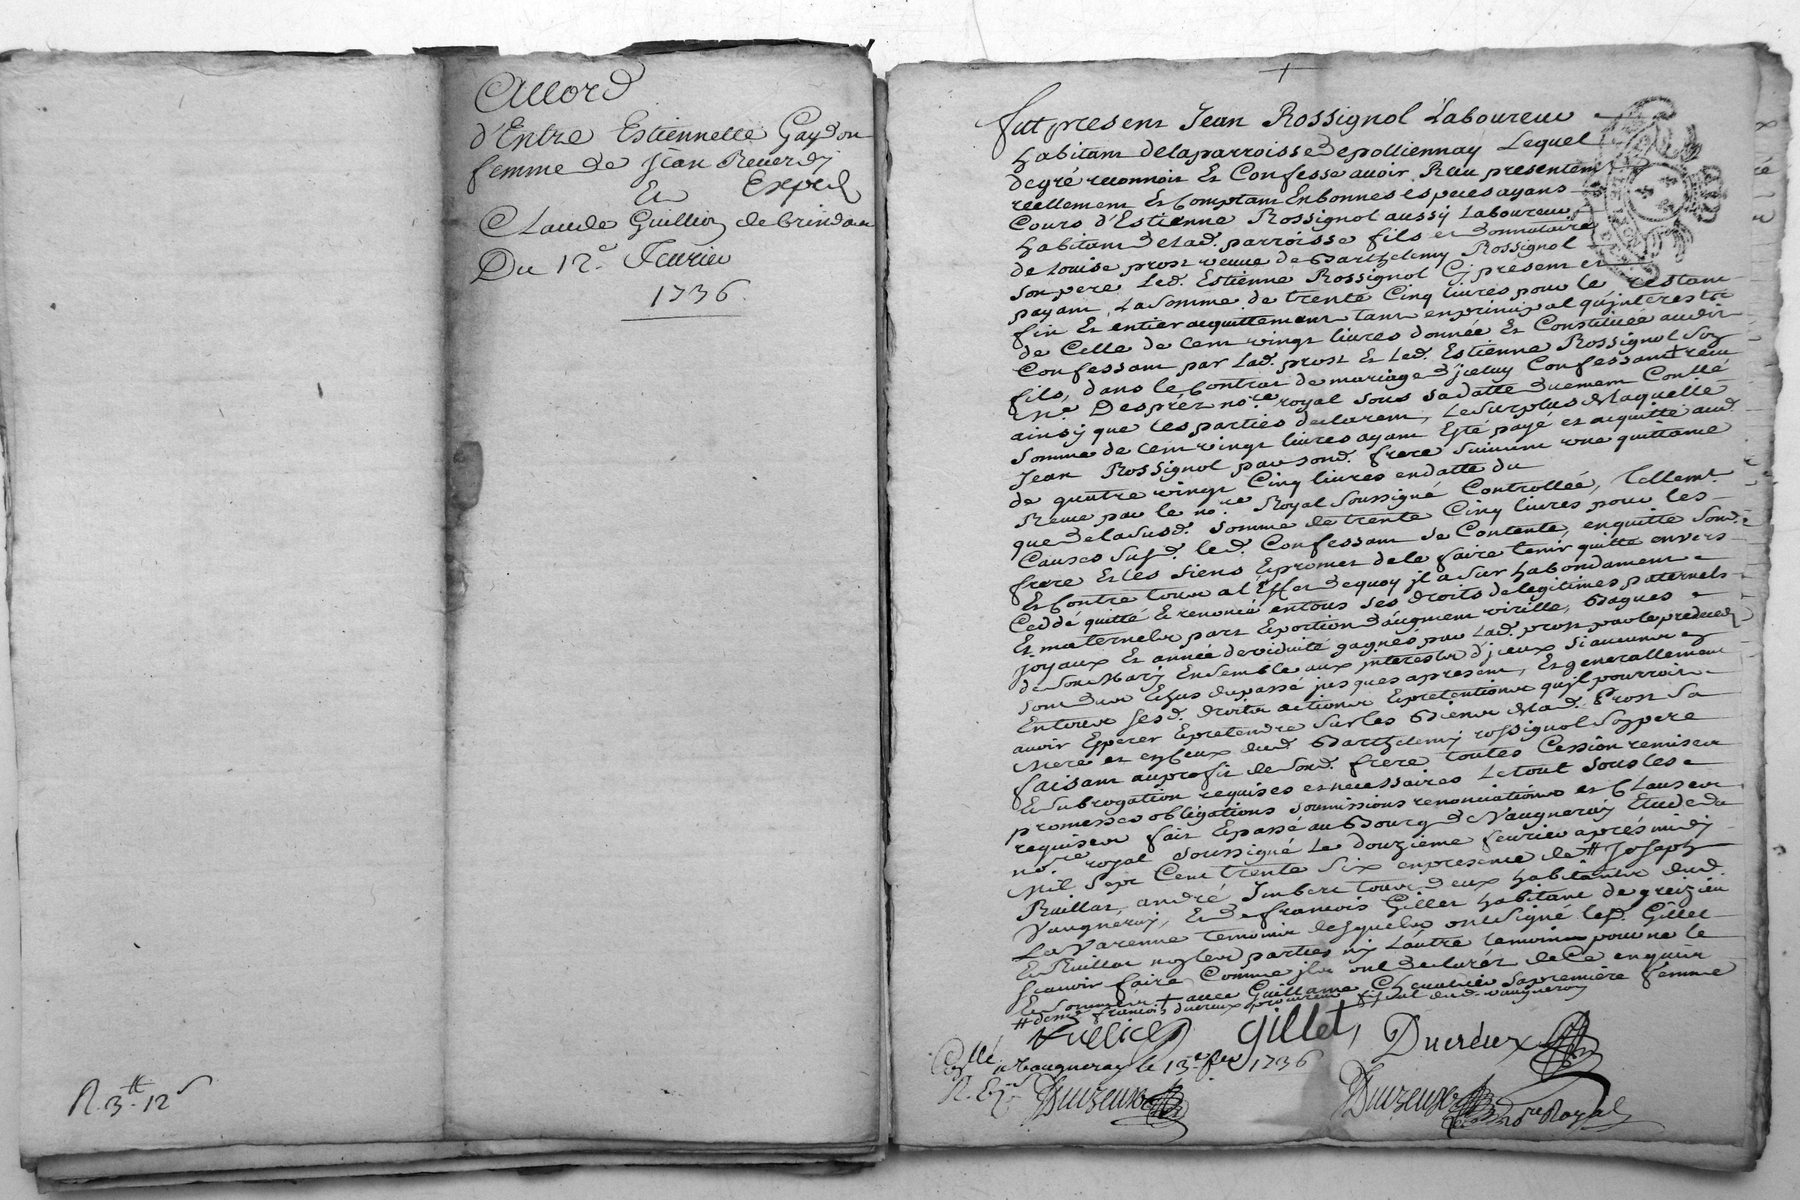 Accord
d'Entre Estiennette Gaydon
femme de Jean Reverdy
Et Exped
Claude Guillion de brindas
Du 12e Feurier
1736
R. 3tt 12s
fut present Jean Rossignol Laboureur
habitant de la parroisse de polliennay Lequel
de gré reconnoit Et Confesse auoir Reçu presentemt
reellement Et Comptant En bonnes especes ayans
Cours d'Estienne Rossignol aussy Laboureur
habitant de lad. parroisse fils et donnataire
de Louise prost veuue de Barthelemy Rossignol
son pere led. Estienne Rossignol Cy present et
payant, La somme de trente Cinq liures pour le restant
fin Et entier acquittement tant en principal qu'interests
de Celle de Cent vingt liures donnée Et Constituée audit
Confessant par Lad. prost Et Led. Estienne Rossignol Son
fils, dans le Contrat de mariage d'jceluy Confessant + reçu
Me Despréz nore royal sous sa datte duement Conllé
ainsy que les parties declarent, Le Surplus de laquelle
somme de Cent vingt liures ayant Esté payé et acquitté aud.
Jean Rossignol par sond. frere Suiuant vne quittance
de quatre vingt Cinq liures en datte du
Receue par le nore Royal Soussigné Controllée, tellemt
que de la susd. somme de trente Cinq liures pour les
Causes Susd. led. Confessant Se Contente, en quitte Sond.
frere Et les Siens Et promet de le faire tenir quitte enuers
Et Contre tous a l'Effet de quoy jl a Sur habondament
Ceddé quitté Et renoncé en tous ses droits de legitimes paternels
Et maternels part Et portion d'augment virille, Bagues
joyaux Et année de viduité gagnés par Lad. prost par le predeceds
de Son Mary Ensemble aux interests d'jceux Si aucuns
sont dus Et Echus du passé jusques a present, Et generallement
En tous sesd. droits actions Et pretentions qu'jl pourroit
auoir Esperer Et pretendre Sur les Biens de Lad. Prost Sa
Mere et en Ceux dud. Barthelemy rossignol Son pere
faisant au profit de Sond. frere toutes Cession remises
Et Subrogation requises et necessaires Le tout Sous les
promesses obligations soumissions renonciations et Clauses
requises fait Et passé au Bourg de Vaugneray Etude du
nore royal soussigné Le douzieme feurier aprés midy
Mil Sept Cent trente Six en presence de # Joseph
Ruillat, andré Jmbert tous deux habitants dud.
Vaugneray, Et de francois Gillet habitant de greizieu
La Varenne temoins desquels ont Signé led. Gillet
Et Ruillat non les parties ny L'autre temoin pour ne le
scauoir faire Comme jls ont declaréz de Ce enquis
Et Sommés + auec Guillame Sa premiere femme
# francois Duereux procureur fiscal dud. vaugneray
gillet, Duereux
Conllé a Vaugneray le 13e fev 1736
nore Royal